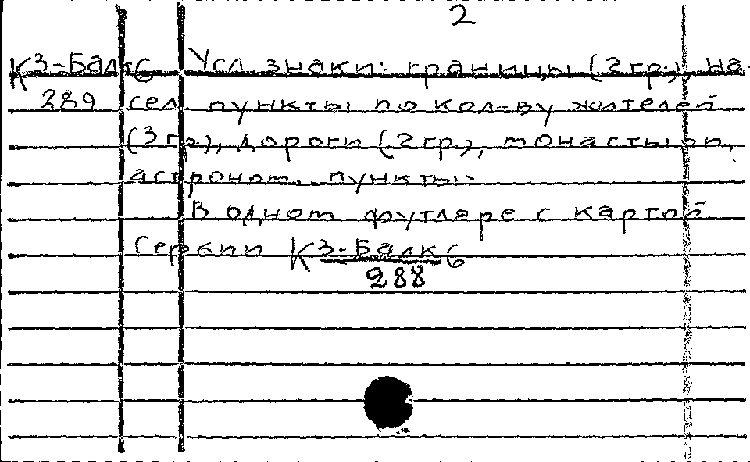 2
К3-Балк6 Усл. знаки: границы (2гр.), на-
289 сел. пункты по кол-ву жителей
(3гр.), дороги (2гр.), монастыри,
астроном. пункты.
В одном футляре с картой
Сербии К3-Балк6
288